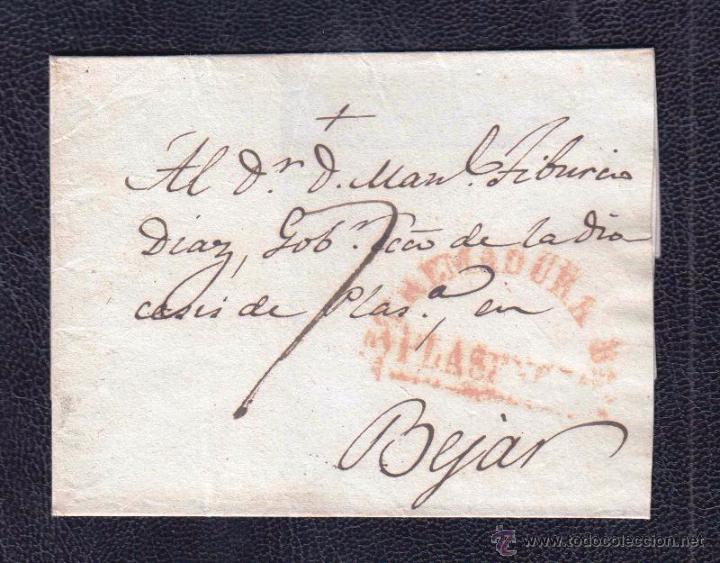 +
Al D.r D. Man.l Tiburcio
Diaz, Gob.r ecco de la dio
cesis de Plas.a, en
7
EXTREMADURA B
PLASENCIA
Bejar
© www.todocoleccion.net